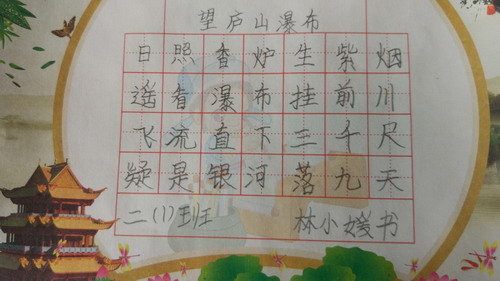 望庐山瀑布
日照香炉生紫烟
遥看瀑布挂前川
飞流直下三千尺
疑是银河落九天
二(1)班 林小媛书